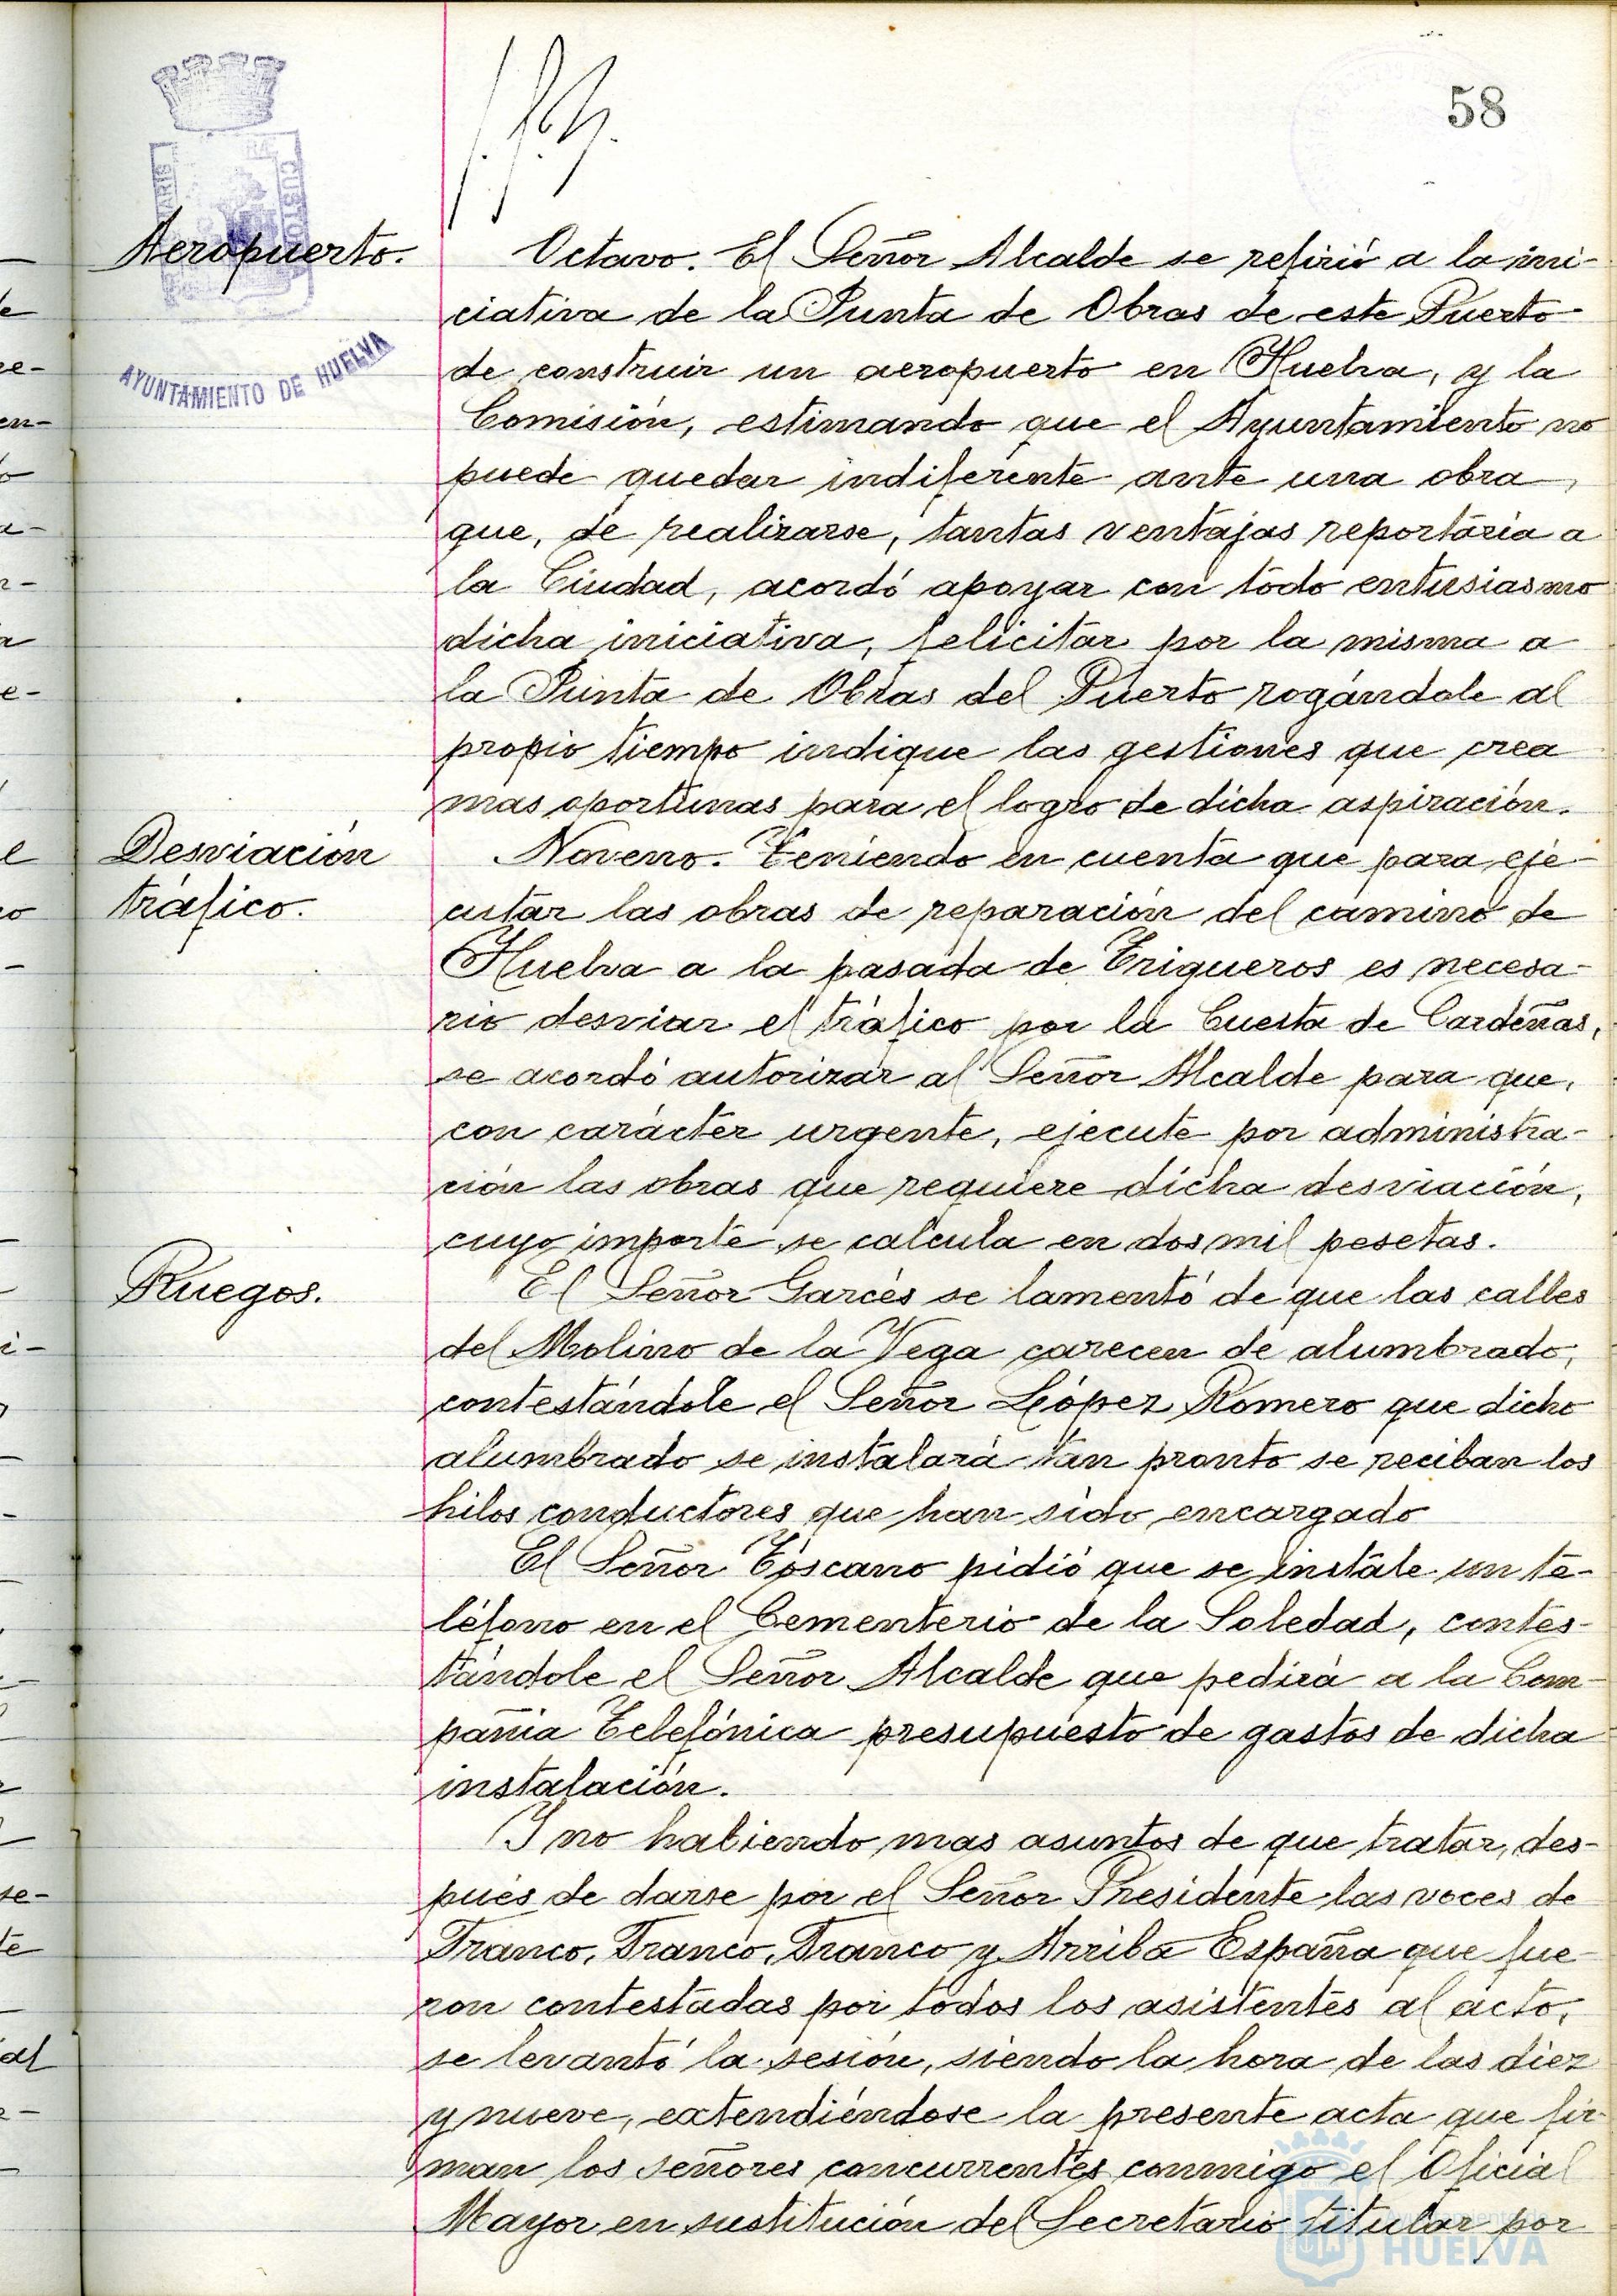 58
Aeropuerto.
Octavo. El Señor Alcalde se refirió a la ini-
ciativa de la Junta de Obras de este Puerto
de construir un aeropuerto en Huelva, y la
Comisión, estimando que el Ayuntamiento no
puede quedar indiferente ante una obra,
que, de realizarse, tantas ventajas reportaria a
la Ciudad, acordó apoyar con todo entusiasmo
dicha iniciativa, felicitar por la misma a
la Junta de Obras del Puerto rogándole al
propio tiempo indique las gestiones que crea
mas oportunas para el logro de dicha aspiración.
Desviación
tráfico.
Noveno. Teniendo en cuenta que para eje-
cutar las obras de reparación del camino de
Huelva a la pasada de Trigueros es necesa-
rio desviar el tráfico por la Cuesta de Cardeñas,
se acordó autorizar al Señor Alcalde para que,
con carácter urgente, ejecute por administra-
ción las obras que requiere dicha desviación,
cuyo importe se calcula en dos mil pesetas.
Ruegos.
El Señor Garcés se lamentó de que las calles
del Molino de la Vega carecen de alumbrado,
contestándole el Señor López Romero que dicho
alumbrado se instalará tan pronto se reciban los
hilos conductores que han sido encargado
El Señor Toscano pidió que se instale un te-
léfono en el Cementerio de la Soledad, contes-
tándole el Señor Alcalde que pedirá a la Com-
pañia Telefónica presupuesto de gastos de dicha
instalación.
Y no habiendo mas asuntos de que tratar, des-
pués de darse por el Señor Presidente las voces de
Franco, Franco, Franco y Arriba España que fue
ron contestadas por todos los asistentes al acto,
se levantó la sesión, siendo la hora de las diez
y nueve, extendiéndose la presente acta que fir
man los señores concurrentes conmigo el Oficial
Mayor en sustitución del Secretario titular por
AYUNTAMIENTO DE HUELVA
HUELVA